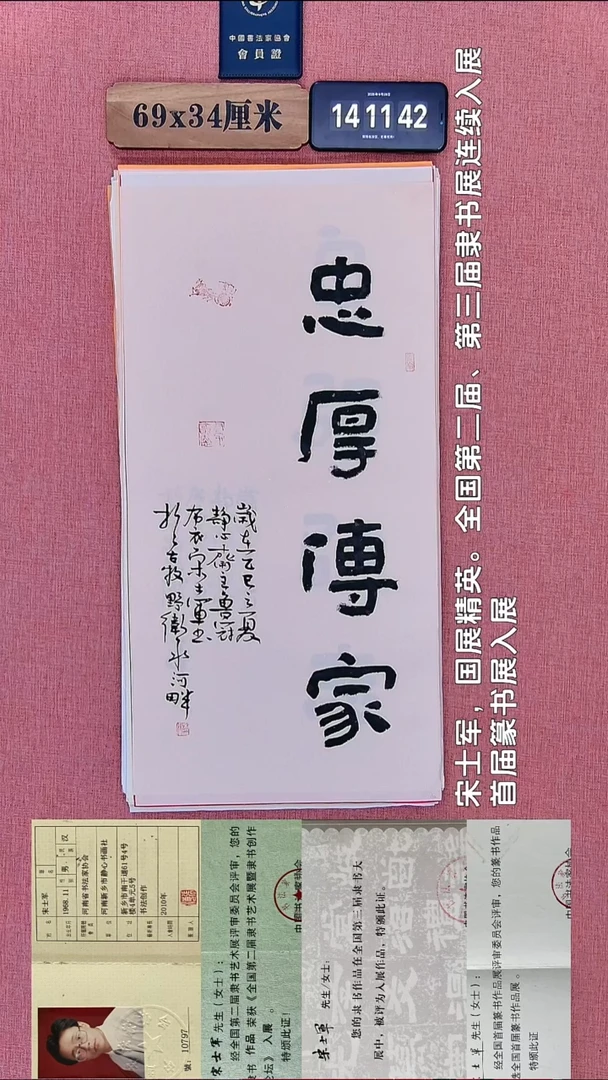 中國書法家協會
會員證
69x34厘米
14 11 42
忠厚傳家
歲在乙巳之夏
静心齋主曹冠
布衣宋士軍書
於古牧野衛水河畔
宋士军，国展精英。全国第二届、第三届隶书展连续入展
首届篆书展入展
宋士军
1968.11 男 汉
河南省书法家协会
河南新乡市静心书画社
新乡市南干道61号4号
楼4单元5号
书法创作
2010年
號：10797
宋士军 先生（女士）：
经全国第二届隶书艺术展评审委员会评审，您的
隶书 作品 荣获《全国第二届隶书艺术展暨隶书创作
论坛》入展 。
特颁此证！
宋士军 先生/女士：
您的隶书作品在全国第三届隶书大
展中，被评为入展作品，特颁此证。
士军 先生（女士）：
经全国首届篆书作品展评审委员会评审，您的篆书作品
选全国首届篆书作品展 。
特颁此证